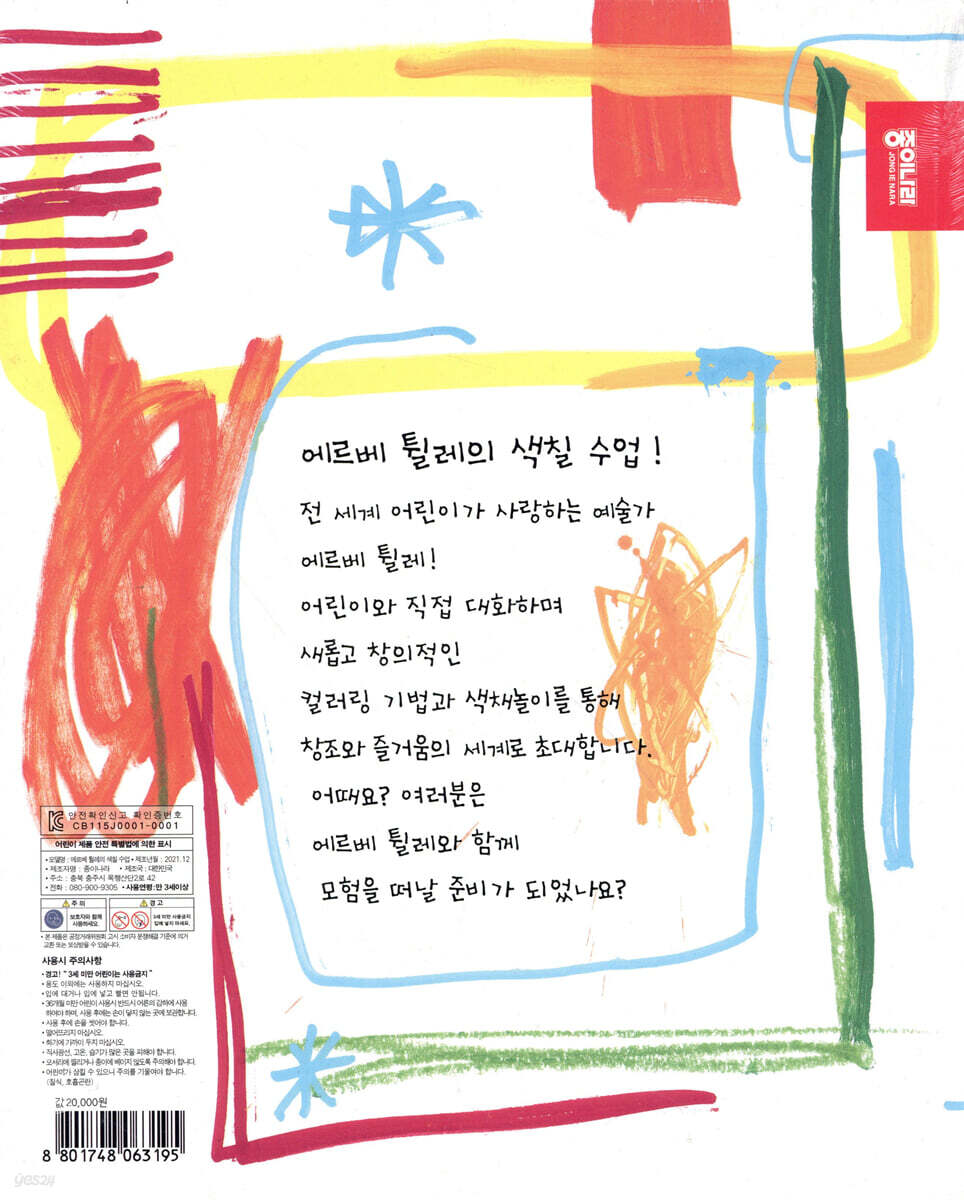 종이나라
JONG IE NARA
에르베 튈레의 색칠 수업!
전 세계 어린이가 사랑하는 예술가
에르베 튈레!
어린이와 직접 대화하며
새롭고 창의적인
컬러링 기법과 색채놀이를 통해
창조와 즐거움의 세계로 초대합니다.
어때요? 여러분은
에르베 튈레와 함께
모험을 떠날 준비가 되었나요?
안전확인신고 확인증번호
CB115J0001-0001
어린이 제품 안전 특별법에 의한 표시
• 모델명 : 에르베 튈레의 색칠 수업 • 제조년월 : 2021.12
• 제조자명 : 종이나라 • 제조국 : 대한민국
• 주소 : 충북 충주시 목행산단2로 42
• 전화 : 080-900-9305 • 사용연령:만 3세이상
주 의
보호자와 함께
사용하세요.
경 고
3세 미만 사용금지
입에 넣지 마세요.
• 본 제품은 공정거래위원회 고시 소비자 분쟁해결 기준에 의거
교환 또는 보상받을 수 있습니다.
사용시 주의사항
• 경고! " 3세 미만 어린이는 사용금지 "
• 용도 이외에는 사용하지 마십시오.
• 입에 대거나 입에 넣고 빨면 안됩니다.
• 36개월 미만 어린이 사용시 반드시 어른의 감하에 사용
하여야 하며, 사용 후에는 손이 닿지 않는 곳에 보관합니다.
• 사용 후에 손을 씻어야 합니다.
• 떨어뜨리지 마십시오.
• 화기에 가까이 두지 마십시오.
• 직사광선, 고온, 습기가 많은 곳을 피해야 합니다.
• 모서리에 찔리거나 종이에 베이지 않도록 주의해야 합니다.
• 어린이가 삼킬 수 있으니 주의를 기울여야 합니다.
(질식, 호흡곤란)
값 20,000원
8 801748 063195
yes24